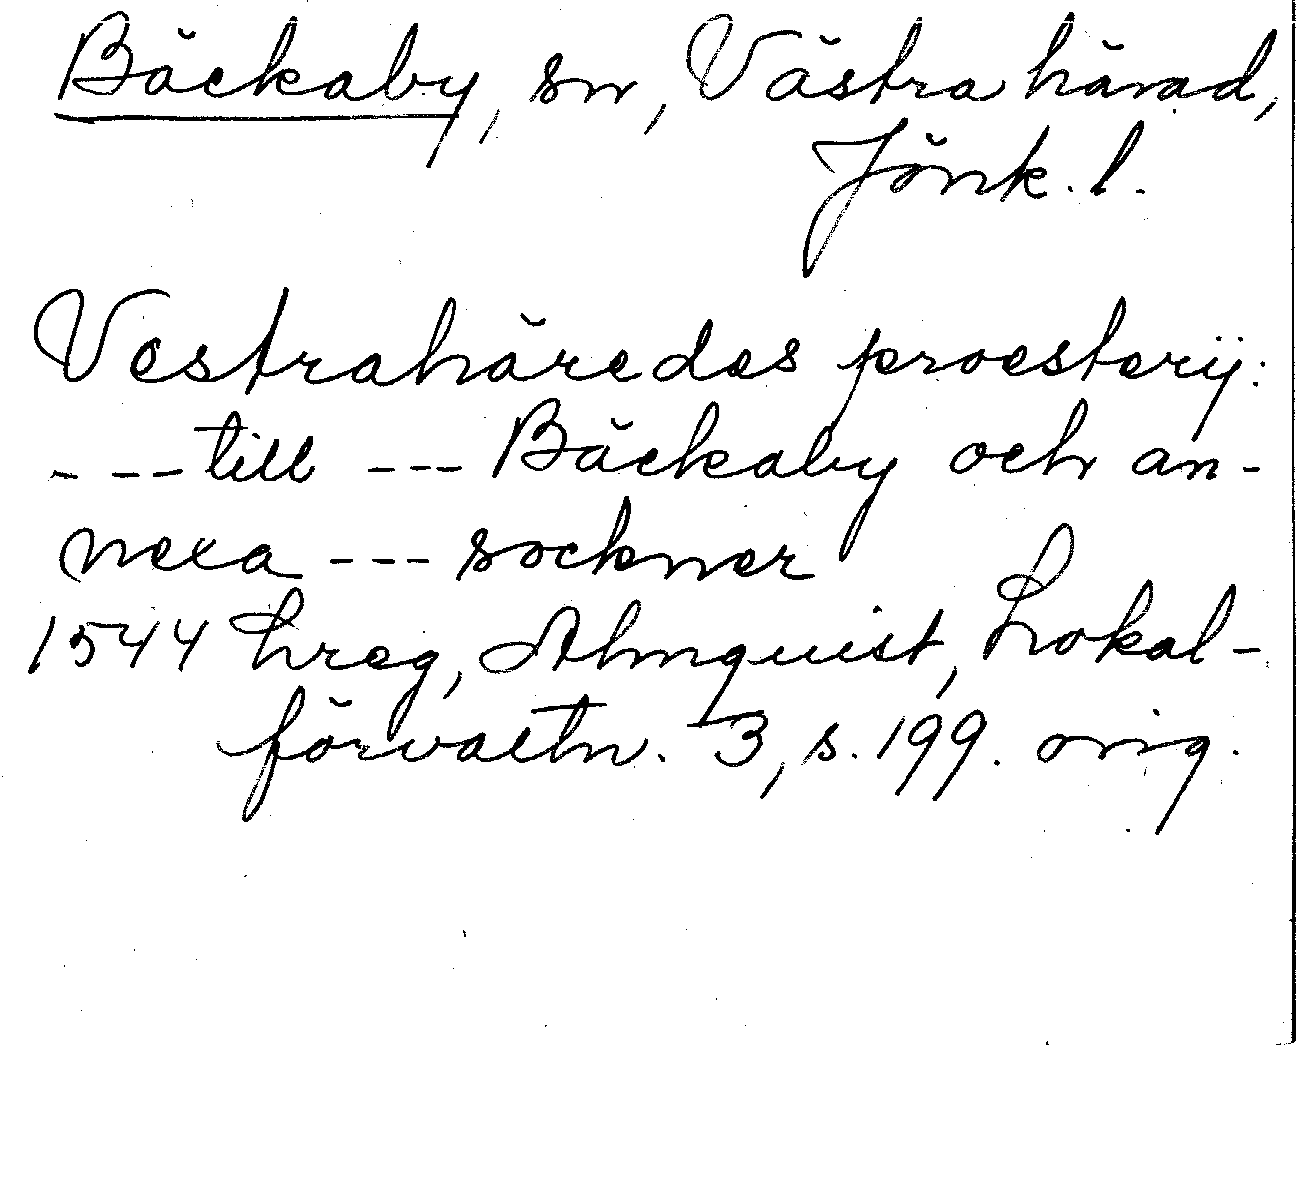 Bäckaby, sn, Västra härad,
Jönk. l.
Vestrahäredes proesterij:
--- till --- Bäckaby och an-
nexa --- sockner
1544 hreg, Almquist, Lokal-
förvaltn. 3, s. 199. orig.